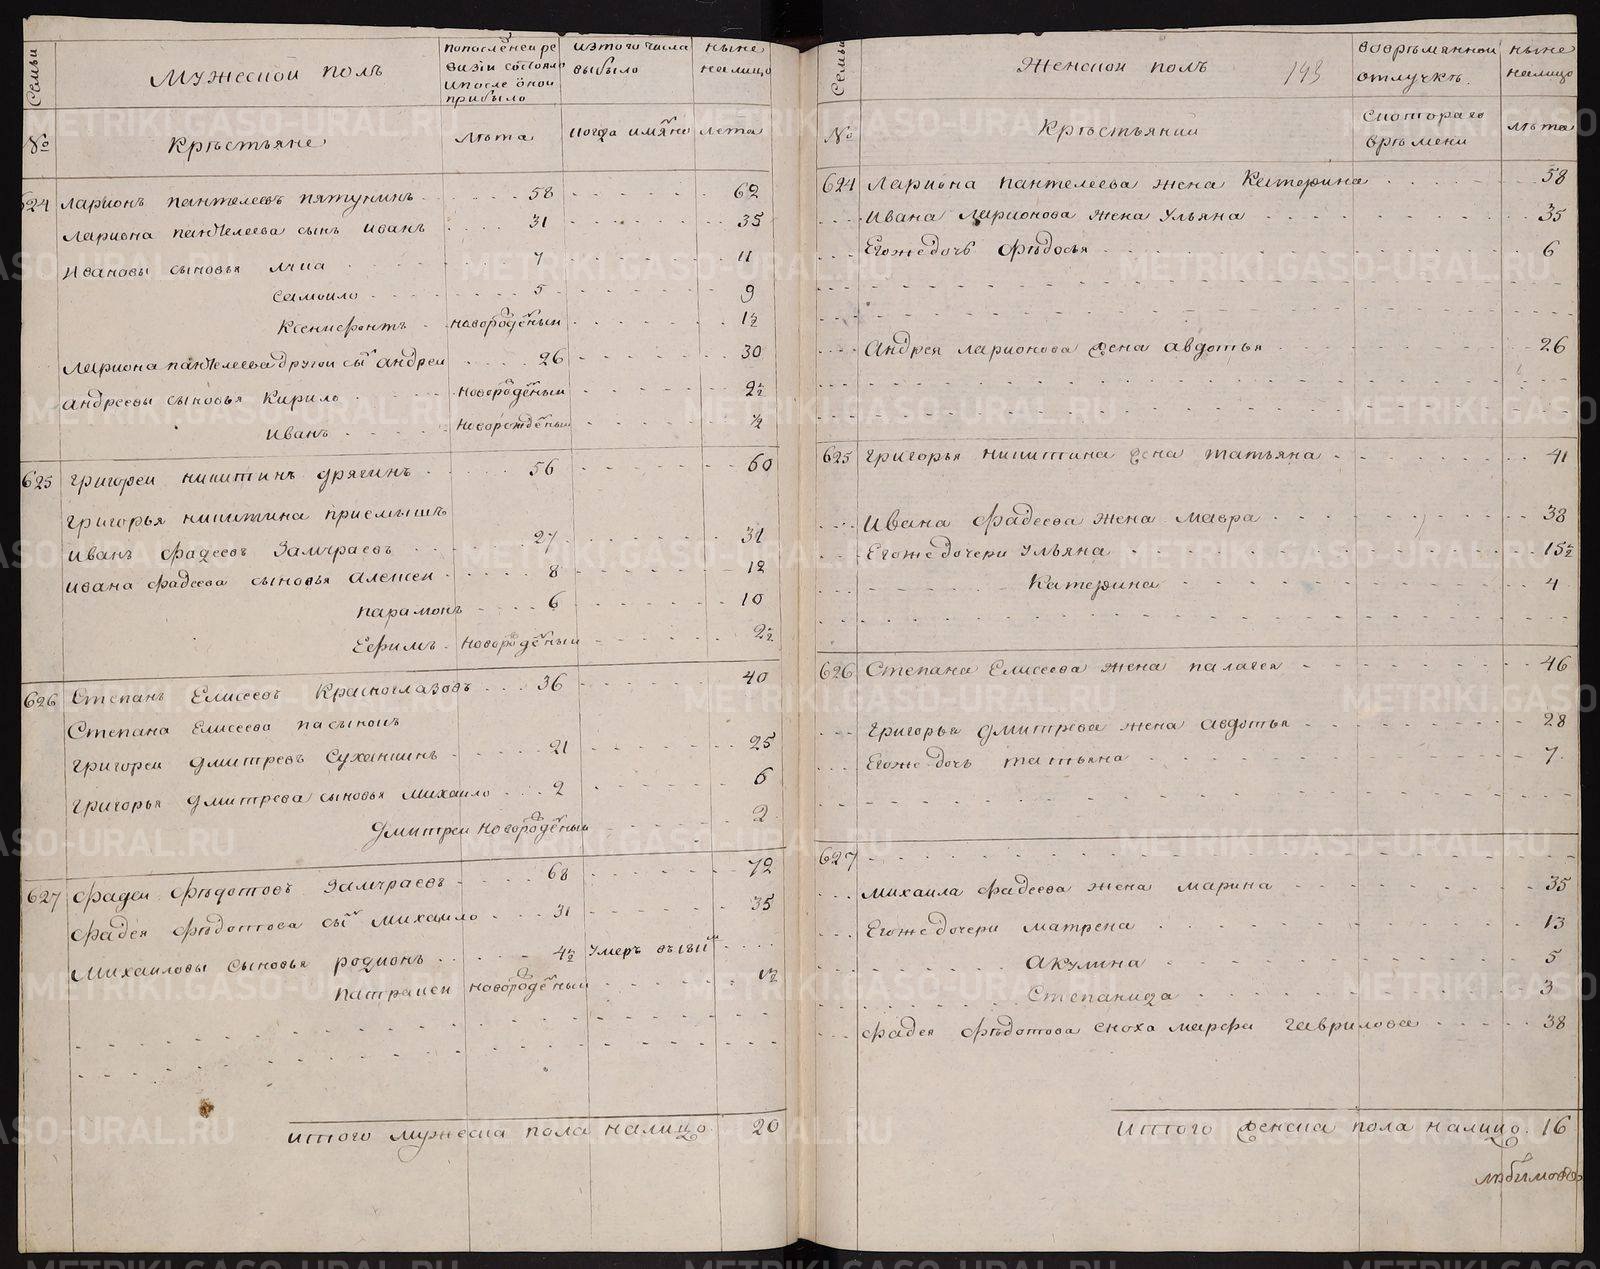 Семьи
Мужескои полъ
попоследнеи ре
визіи состояло
ипосле онои
прибыло
изтого числа
выбыло
ныне
налицо
№
Крѣстьяне
лѣта
когда имянно
лета
624 Ларионъ пантелеевъ пятунинъ 58 62
Лариона пантелеева сынъ иванъ 31 35
Ивановы сыновья лука 7 11
самоило 5 9
Ксенифонтъ новорожденыи 1½
Лариона пантелеева другои сынъ андреи 26 30
андреевы сыновья Кирило новорожденыи 2½
иванъ новорожденыи ½
625 григореи никитинъ дрягинъ 56 60
григорья никитина приемышъ
иванъ фадеевъ Замураевъ 27 31
ивана фадеева сыновья алексеи 8 12
парамонъ 6 10
Ефимъ новорожденыи 2½
626 Степанъ Елисеевъ Красноглазовъ 36 40
Степана Елисеева пасынокъ
григореи дмитревъ Суханкинъ 21 25
григорья дмитрева сыновья михаило 2 6
дмитреи новорожденыи 2
627 фадеи фѣдотовъ Замураевъ 68 72
фадея фѣдотова сынъ михаило 31 35
михаиловы сыновья родионъ 4½ умеръ въ 1811м
патракеи новорожденыи 1½
итого мужеска пола налицо 20
Семьи
Женскои полъ
143
вовремяннои
отлучкѣ
ныне
налицо
№
Крѣстьянки
скотораго
врѣмени
лѣта
624 Лариона пантелеева жена Катерина 58
Ивана Ларионова жена Ульяна 35
Егоже дочь фѣдосья 6
андрея ларионова жена авдотья 26
625 григорья никитина жена татьяна 41
ивана фадеева жена мавра 38
Егоже дочери ульяна 15½
Катерина 4
626 Степана Елисеева жена палагея 46
григорья дмитрева жена авдотья 28
Егоже дочь татьяна 7
627
михаила фадеева жена марина 35
Егоже дочери матрена 13
акулина 5
Степанида 3
фадея фѣдотова сноха марфа гаврилова 38
итого женска пола налицо 16
METRIKI.GASO-URAL.RU